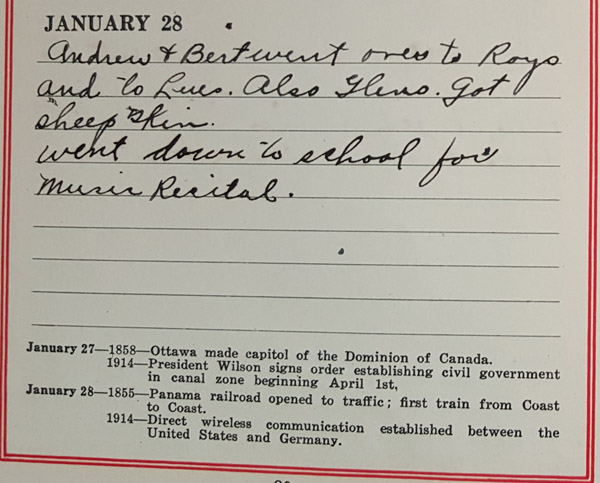 JANUARY 28
Andrew & Bert went over to Roys
and to Lues. Also Glens. Got
sheep skin.
went down to school for
Music Recital.
January 27—1858—Ottawa made capitol of the Dominion of Canada.
1914—President Wilson signs order establishing civil government
in canal zone beginning April 1st,
January 28—1855—Panama railroad opened to traffic; first train from Coast
to Coast.
1914—Direct wireless communication established between the
United States and Germany.